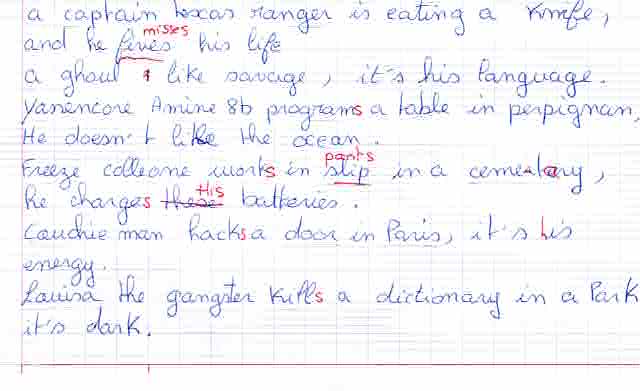 a captain texas ranger is eating a knife,
misses
and he fires his life
a ghoul like savage, it's his language.
Yanencore Amine 8b programs a table in perpignan,
He doesn't like the ocean.
pants
Freeze colleone works in slip in a cemetary,
his
he charges these batteries.
Cauchie man hacks a door in Paris, it's his
energy.
Louisa the gangster kills a dictionary in a Park
it's dark.